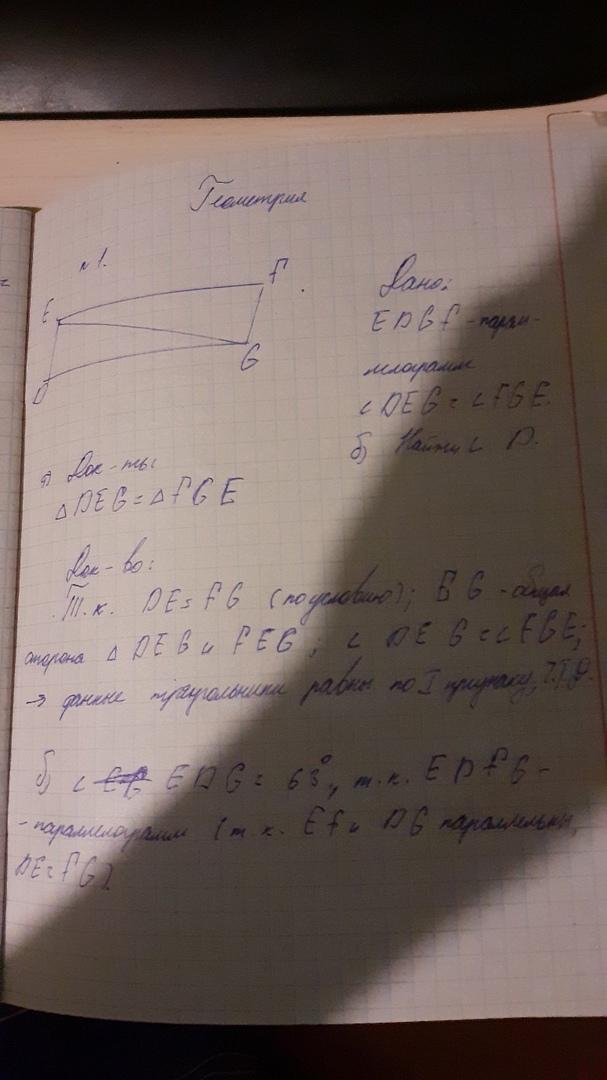 Геометрия
№1.
E
F
D
G
Дано:
EDGF - парал-
лелограмм
∠DEG = ∠FGE.
б) Найти ∠ D.
а) Док-ть:
△DEG = △FGE
Док-во:
Т.к. DE = FG (по условию); EG - общая
сторона △ DEG и FEG; ∠ DEG = ∠FGE;
→ данные треугольники равны по I признаку,
б) ∠ EDG = 63°, т.к. EDFG -
- параллелограмм (т.к. EF и DG параллельны,
DE = FG).